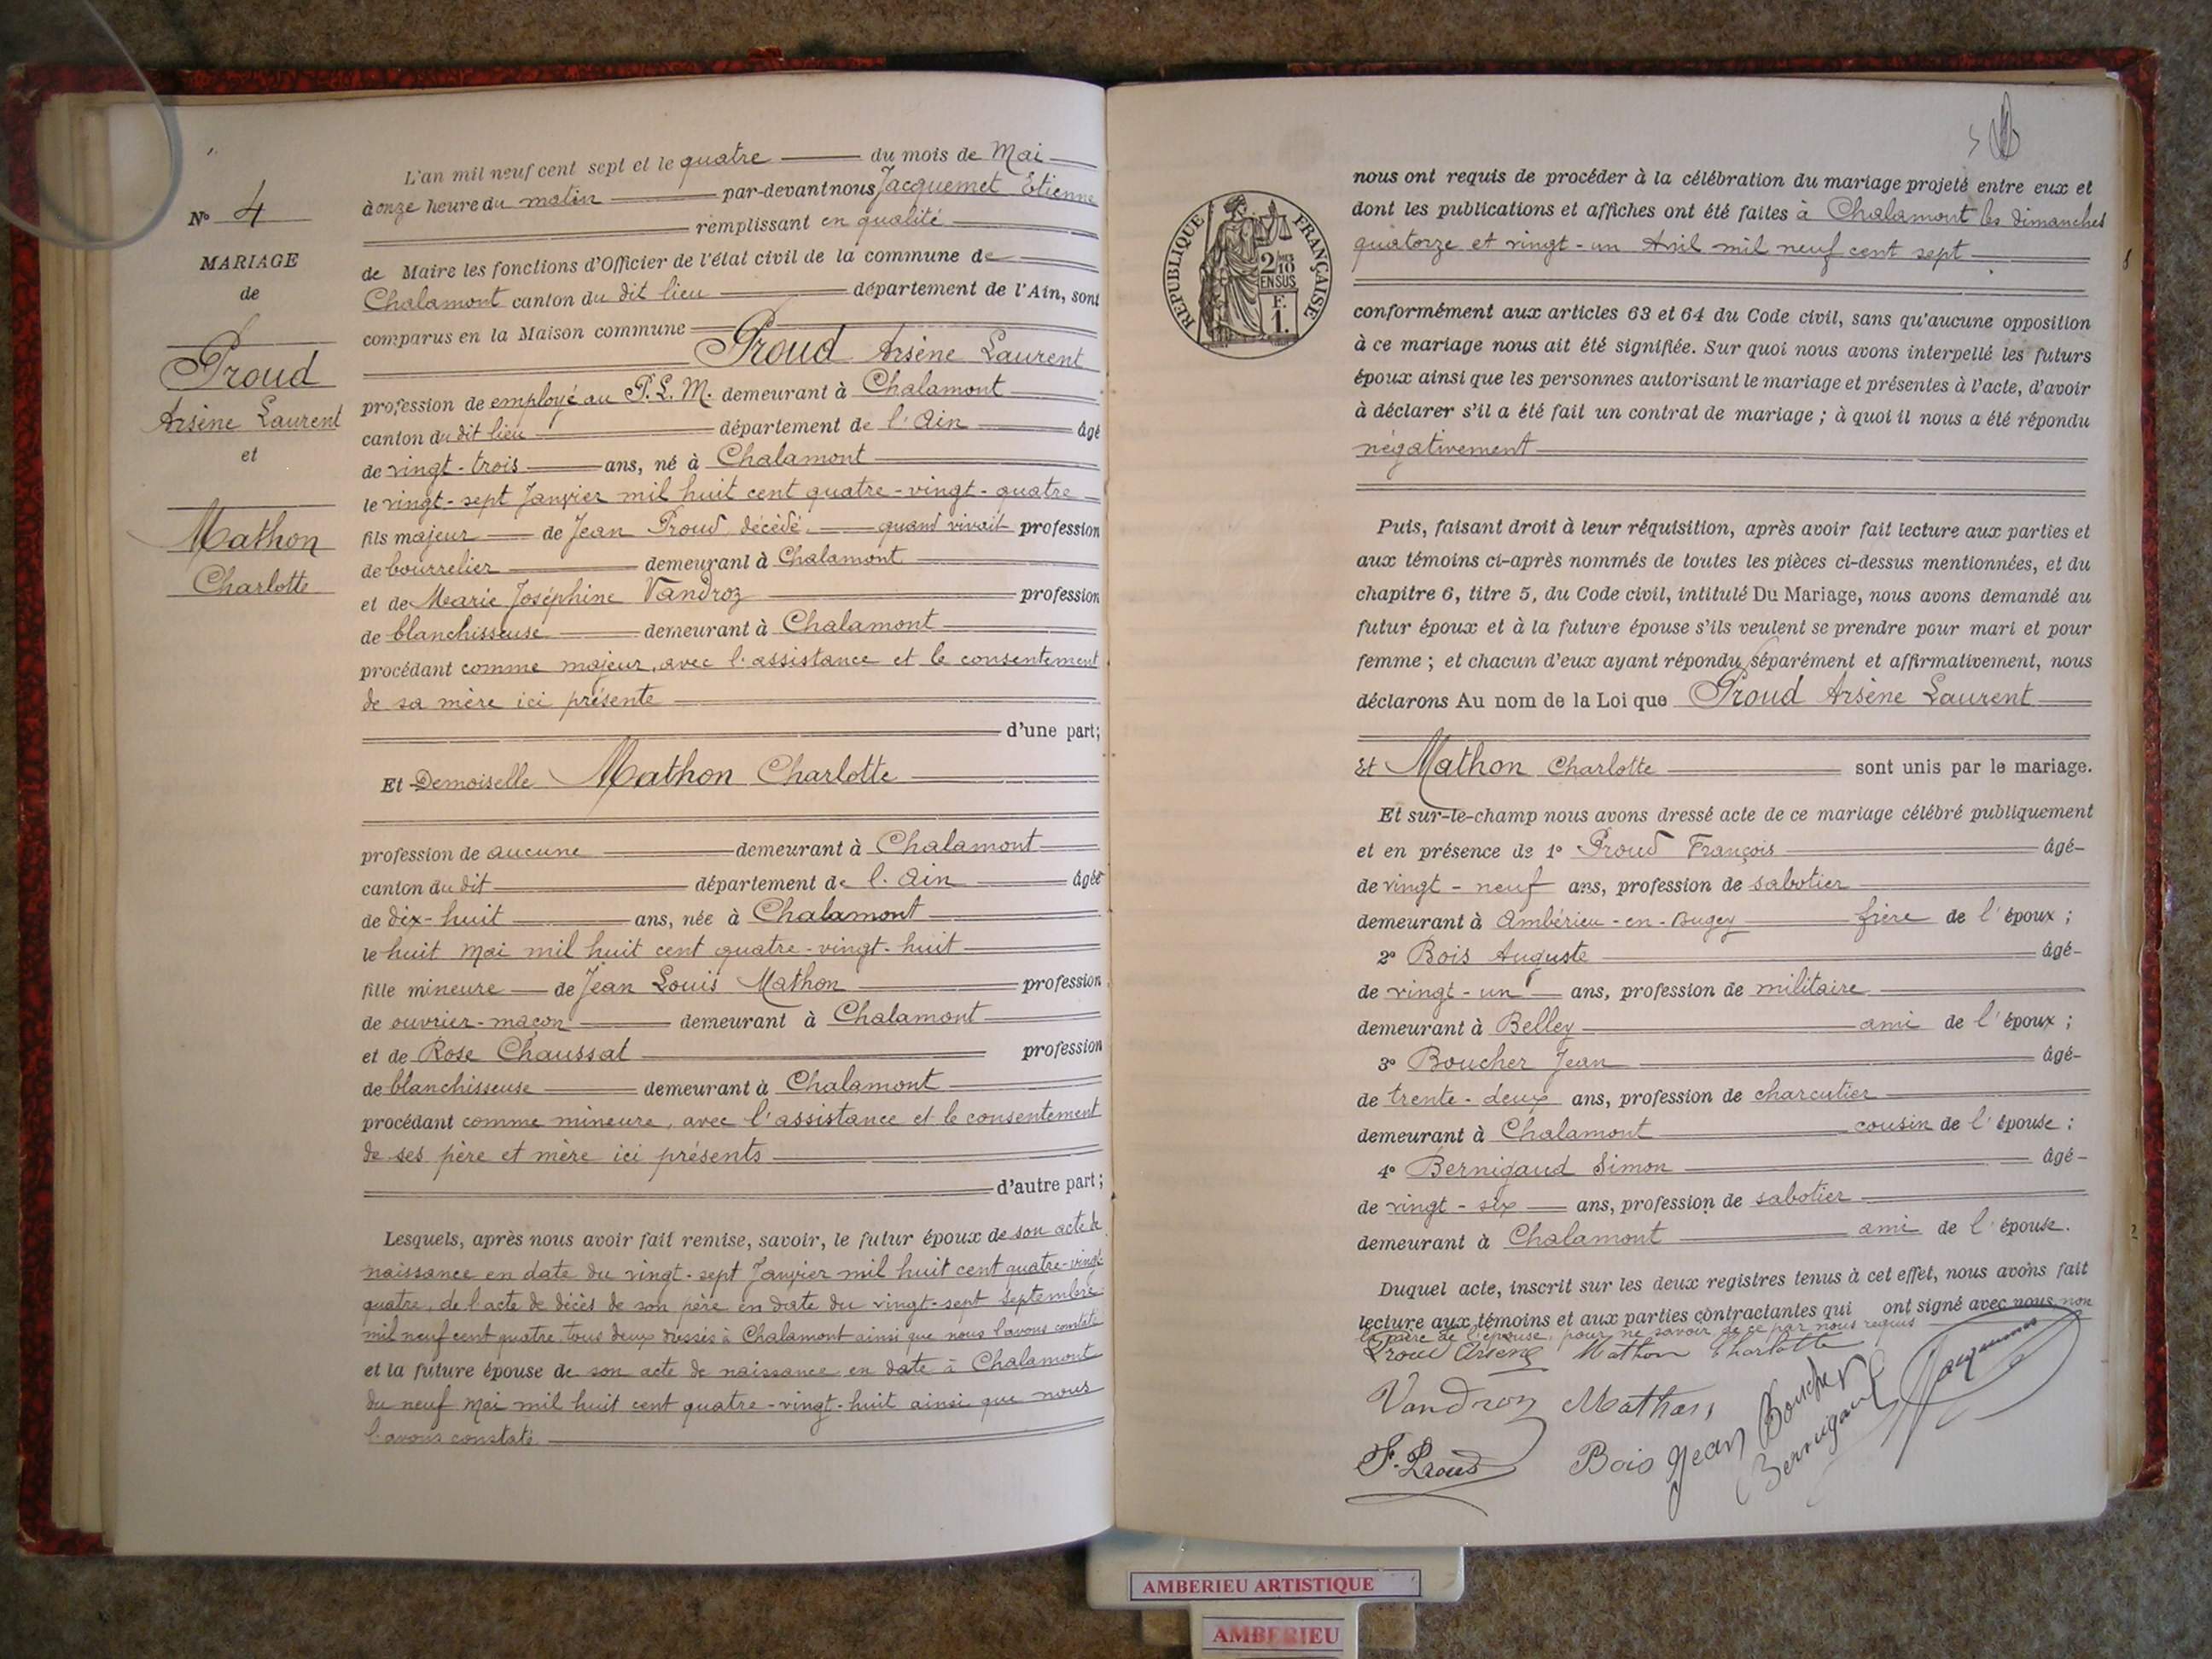 N° 4
MARIAGE
de
Proud
Arsène Laurent
et
Mathon
Charlotte
L'an mil neuf cent sept et le quatre du mois de Mai
à onze heure du matin par-devant nous Jacquemet Etienne
remplissant en qualité
de Maire les fonctions d'Officier de l'état civil de la commune de
Chalamont canton du dit lieu département de l'Ain, sont
comparus en la Maison commune
Proud Arsène Laurent
profession de employé au P. L. M. demeurant à Chalamont
canton du dit lieu département de l'Ain âgé
de vingt-trois ans, né à Chalamont
le vingt-sept Janvier mil huit cent quatre-vingt-quatre
fils majeur de Jean Proud, décédé, quand vivait profession
de bourrelier demeurant à Chalamont
et de Marie Joséphine Vandroz profession
de blanchisseuse demeurant à Chalamont
procédant comme majeur, avec l'assistance et le consentement
de sa mère ici présente
d'une part;
Et Demoiselle Mathon Charlotte
profession de aucune demeurant à Chalamont
canton du dit département de l'Ain âgée
de dix-huit ans, née à Chalamont
le huit Mai mil huit cent quatre-vingt-huit
fille mineure de Jean Louis Mathon profession
de ouvrier-maçon demeurant à Chalamont
et de Rose Chaussat profession
de blanchisseuse demeurant à Chalamont
procédant comme mineure, avec l'assistance et le consentement
de ses père et mère ici présents
d'autre part;
Lesquels, après nous avoir fait remise, savoir, le futur époux de son acte de
naissance en date du vingt-sept Janvier mil huit cent quatre-vingt-
quatre, de l'acte de décès de son père en date du vingt-sept Septembre
mil neuf cent quatre, tous deux dressés à Chalamont ainsi que nous l'avons constaté
et la future épouse de son acte de naissance en date à Chalamont
du neuf Mai mil huit cent quatre-vingt-huit ainsi que nous
l'avons constaté
RÉPUBLIQUE FRANÇAISE
2/10
EN SUS
F.
1.
nous ont requis de procéder à la célébration du mariage projeté entre eux et
dont les publications et affiches ont été faites à Chalamont les dimanches
quatorze et vingt-un Avril mil neuf cent sept
conformément aux articles 63 et 64 du Code civil, sans qu'aucune opposition
à ce mariage nous ait été signifiée. Sur quoi nous avons interpellé les futurs
époux ainsi que les personnes autorisant le mariage et présentes à l'acte, d'avoir
à déclarer s'il a été fait un contrat de mariage ; à quoi il nous a été répondu
négativement
Puis, faisant droit à leur réquisition, après avoir fait lecture aux parties et
aux témoins ci-après nommés de toutes les pièces ci-dessus mentionnées, et du
chapitre 6, titre 5, du Code civil, intitulé Du Mariage, nous avons demandé au
futur époux et à la future épouse s'ils veulent se prendre pour mari et pour
femme ; et chacun d'eux ayant répondu séparément et affirmativement, nous
déclarons Au nom de la Loi que Proud Arsène Laurent
Et Mathon Charlotte sont unis par le mariage.
Et sur-le-champ nous avons dressé acte de ce mariage célébré publiquement
et en présence de 1° Proud François âgé-
de vingt-neuf ans, profession de sabotier
demeurant à Ambérieu-en-Bugey frère de l'époux ;
2° Bois Auguste âgé-
de vingt-un ans, profession de militaire
demeurant à Belley ami de l'époux ;
3° Boucher Jean âgé-
de trente-deux ans, profession de charcutier
demeurant à Chalamont cousin de l'épouse ;
4° Bernigaud Simon âgé-
de vingt-six ans, profession de sabotier
demeurant à Chalamont ami de l'épouse.
Duquel acte, inscrit sur les deux registres tenus à cet effet, nous avons fait
lecture aux témoins et aux parties contractantes qui ont signé avec nous, non
la mère de l'épouse, pour ne savoir de ce par nous requis
Proud Arsène Mathon Charlotte
Vandroz Mathon
F. Proud Bois Jean Boucher
Bernigaud Jacquemet
AMBERIEU ARTISTIQUE
AMBERIEU